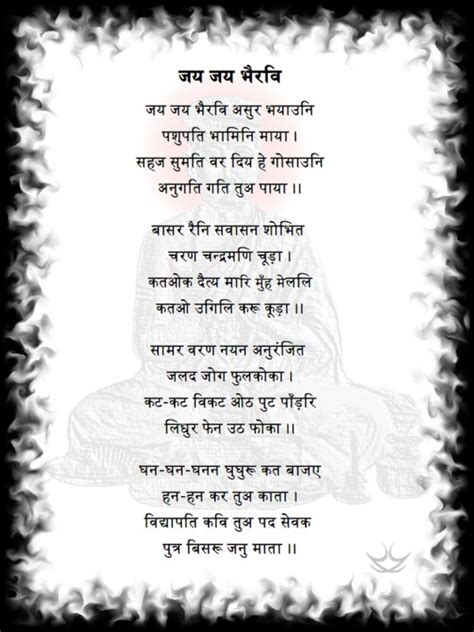 जय जय भैरवि
जय जय भैरवि असुर भयाउनि
पशुपति भामिनि माया ।
सहज सुमति वर दिय हे गोसाउनि
अनुगति गति तुअ पाया ।।
बासर रैनि सवासन शोभित
चरण चन्द्रमणि चूड़ा ।
कतओक दैत्य मारि मुँह मेललि
कतओ उगिलि करू कूड़ा ।।
सामर वरण नयन अनुरंजित
जलद जोग फुलकोका ।
कट-कट विकट ओठ पुट पाँड़रि
लिधुर फेन उठ फोका ।।
घन-घन-घनन घुघुरू कत बाजए
हन-हन कर तुअ काता ।
विद्यापति कवि तुअ पद सेवक
पुत्र बिसरू जनु माता ।।